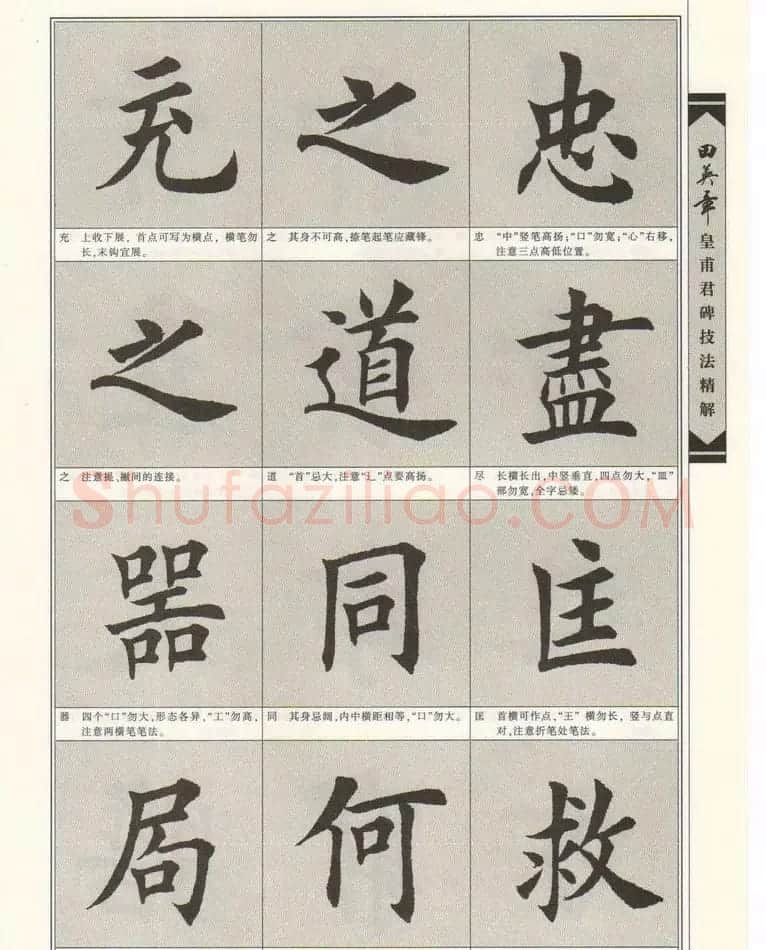 充 之 忠
充 上收下展，首点可写为横点，横笔勿
长，末钩宜展。
之 其身不可高，捺笔起笔应藏锋。
忠 “中”竖笔高扬；“口”勿宽；“心”右移，
注意三点高低位置。
之 道 盡
之 注意提、撇间的连接。
道 “首”忌大，注意“辶”点要高扬。
尽 长横长出，中竖垂直，四点勿大，“皿”
部勿宽，全字忌矮。
器 同 匡
器 四个“口”勿大，形态各异，“工”勿高，
注意两横笔笔法。
同 其身忌阔，内中横距相等，“口”勿大。
匡 首横可作点，“王”横勿长，竖与点直
对，注意折笔处笔法。
局 何 救
田英章
皇甫君碑技法精解
Shufaziliao.COM